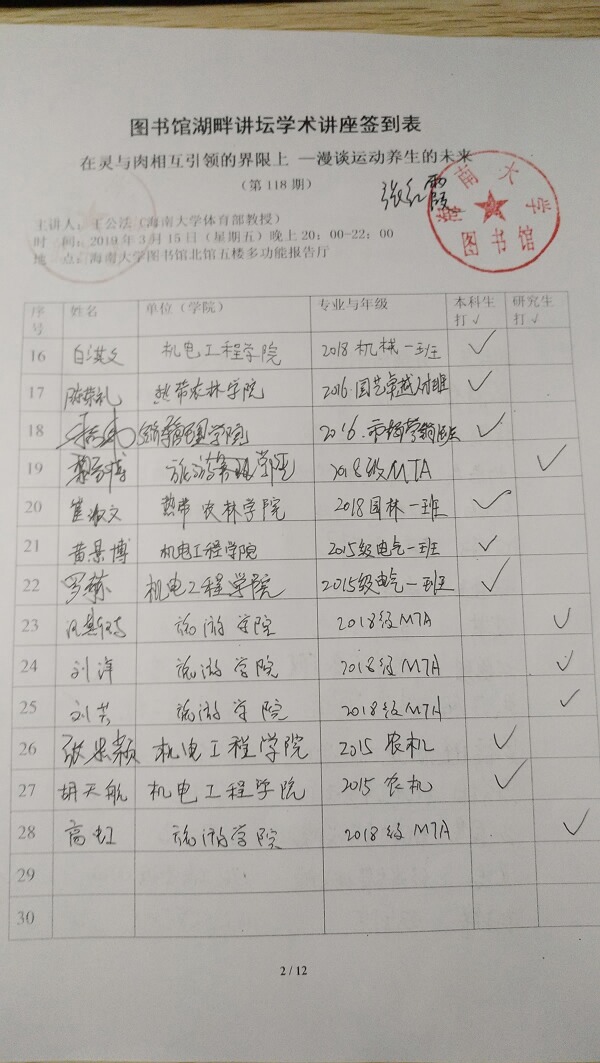 图书馆湖畔讲坛学术讲座签到表
在灵与肉相互引领的界限上 —漫谈运动养生的未来
(第 118 期)
张红霞
海南大学
图书馆
主讲人：王公法（海南大学体育部教授）
时 间：2019 年 3 月 15 日（星期五）晚上 20：00-22：00
地 点：海南大学图书馆北馆五楼多功能报告厅
序号 姓名 单位（学院） 专业与年级 本科生打√ 研究生打√
16 白淇文 机电工程学院 2018机械一班 √
17 陈荣礼 热带农林学院 2016园艺卓越人才班 √
18 学院 2016.市场营销 √
19 博 旅游 2018级MTA √
20 崔淑文 热带农林学院 2018园林一班 √
21 黄景博 机电工程学院 2015级电气一班 √
22 罗赫 机电工程学院 2015级电气一班 √
23 旅游学院 2018级MTA √
24 刘洋 旅游学院 2018级MTA √
25 刘芳 旅游学院 2018级MTA √
26 张忠颖 机电工程学院 2015 农机 √
27 胡天航 机电工程学院 2015 农机 √
28 高虹 旅游学院 2018级MTA √
29
30
2 / 12